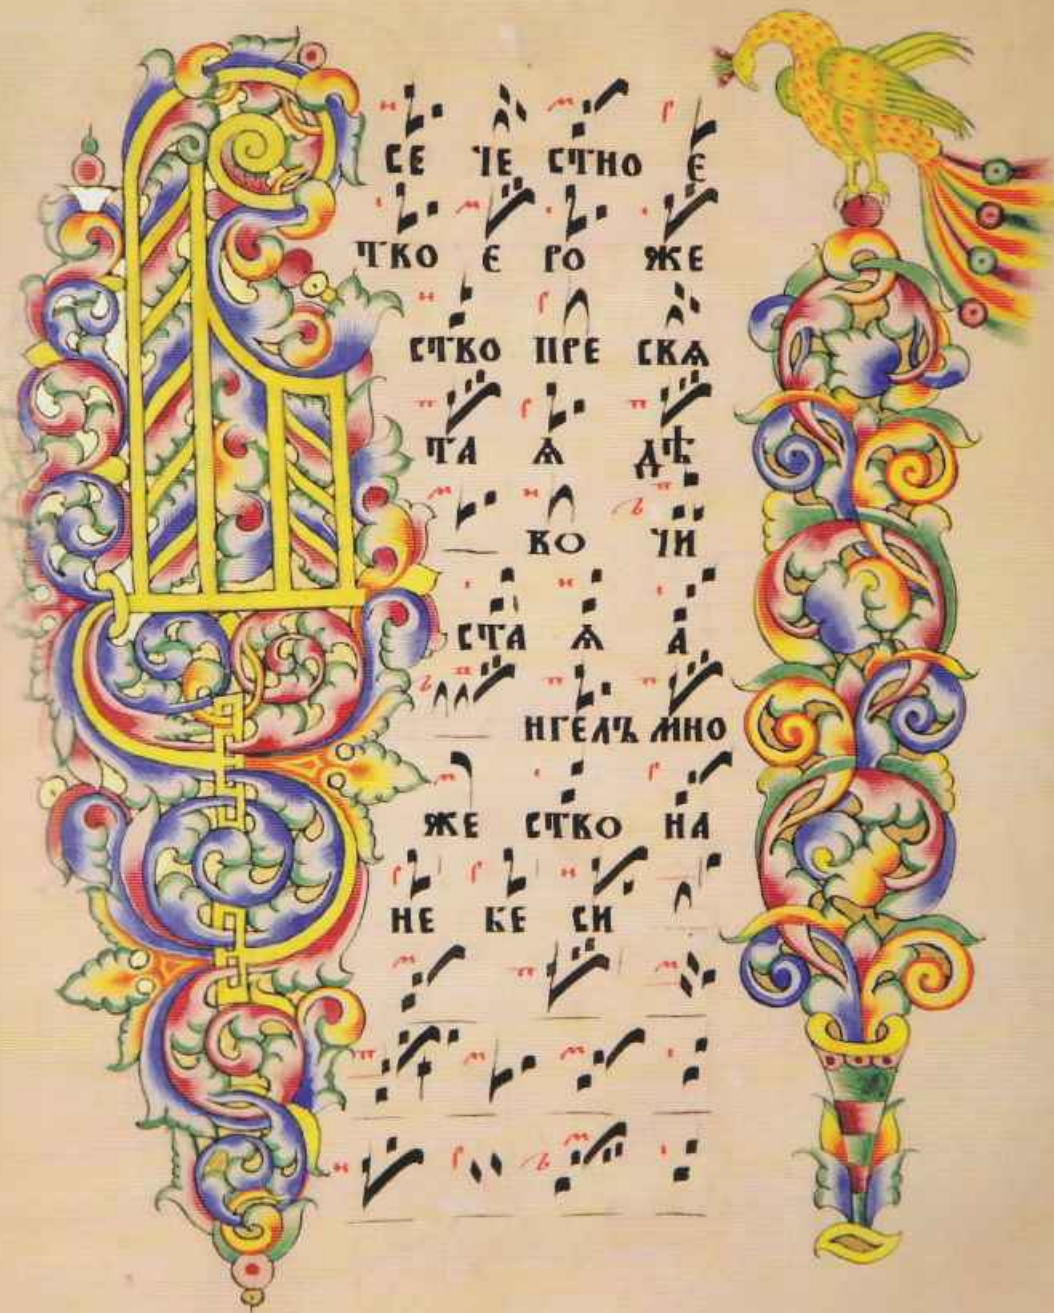 В СЕ ЧЕ СТНО Е
ТВО Е РО ЖЕ
СТВО ПРЕ СВѦ
ТА Ѧ ДѢ
ВО ЧИ
СТА Ѧ А
НГЕЛЪ МНО
ЖЕ СТВО НА
НЕ БЕ СИ